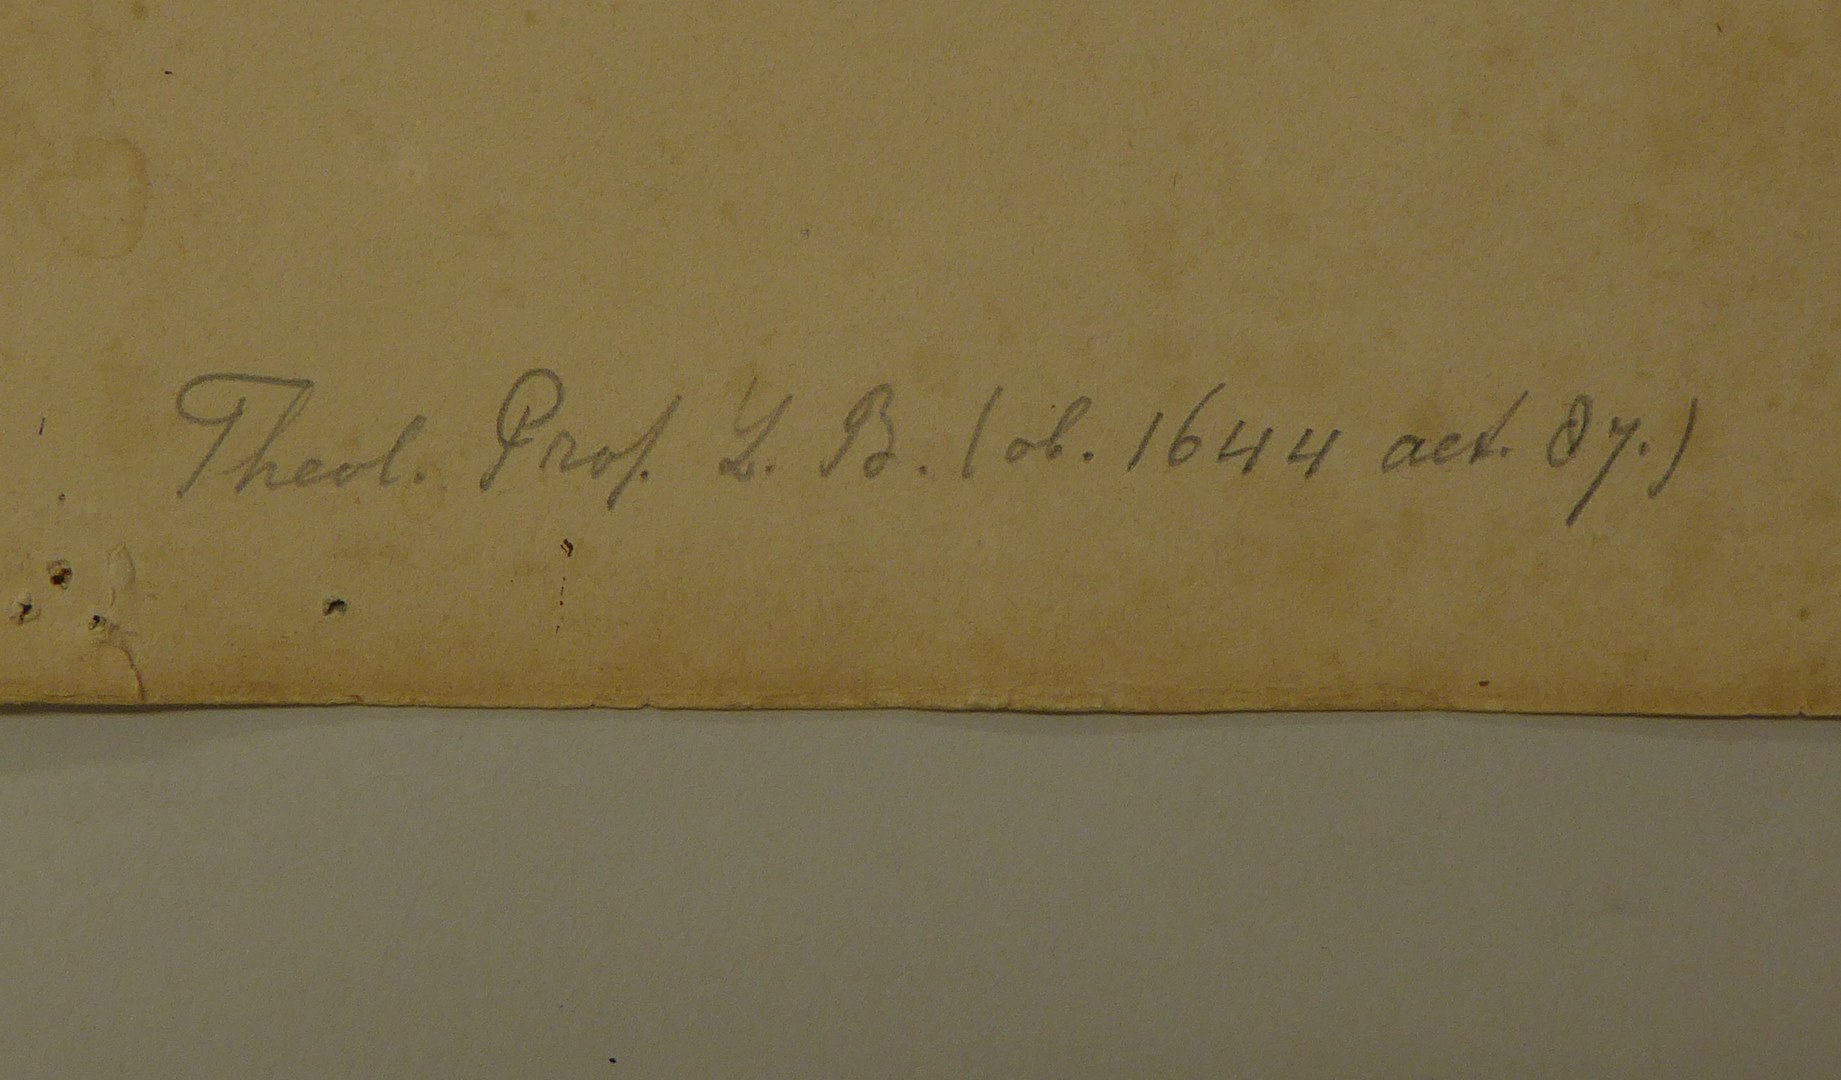 Theol. Prof. L. B. (ob. 1644 aet. 87.)